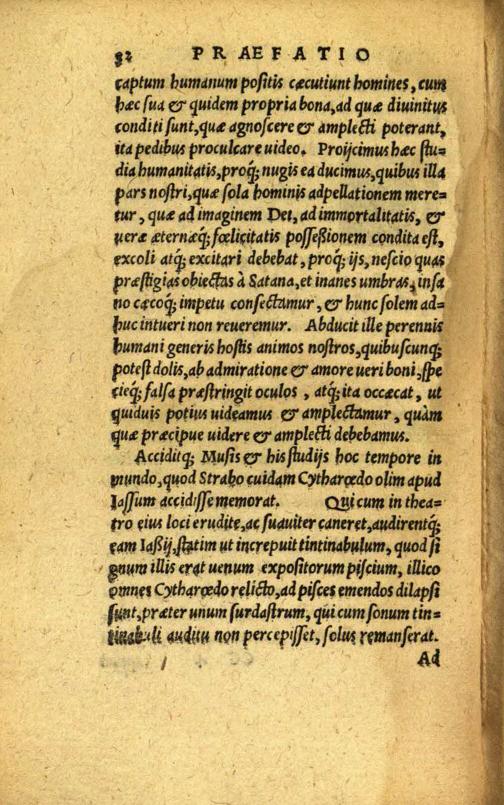 32 PRAEFATIO
captum humanum positis cæcutiunt homines, cum
hæc sua & quidem propria bona, ad quæ diuinitus
conditi sunt, quæ agnoscere & amplecti poterant,
ita pedibus proculcare uideo. Proijcimus hæc stu=
dia humanitatis, proq; nugis ea ducimus, quibus illa
pars nostri, quæ sola hominis adpellationem mere=
tur, quæ ad imaginem Dei, ad immortalitatis, &
ueræ æternæq; fœlicitatis possessionem condita est,
excoli atq; excitari debebat, proq; ijs, nescio quas
præstigias obiectas à Satana, et inanes umbras, insa
no cæcoq; impetu consectamur, & hunc solem ad=
huc intueri non reueremur. Abducit ille perennis
humani generis hostis animos nostros, quibuscunq;
potest dolis, ab admiratione & amore ueri boni, spe
cieq; falsa præstringit oculos, atq; ita occæcat, ut
quiduis potius uideamus & amplectamur, quàm
quæ præcipue uidere & amplecti debebamus.
Acciditq; Musis & his studijs hoc tempore in
mundo, quod Strabo cuidam Cytharœdo olim apud
Iassum accidisse memorat. Qui cum in thea=
tro eius loci erudite, ac suauiter caneret, audirentq;
eam Iassij, statim ut increpuit tintinabulum, quod si
gnum illis erat uenum expositorum piscium, illico
omnes Cytharœdo relicto, ad pisces emendos dilapsi
sunt, præter unum surdastrum, qui cum sonum tin=
tinabuli auditu non percepisset, solus remanserat.
Ad